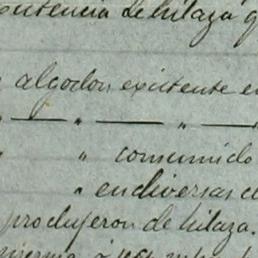 existencia de hilaza q
algodon existente e
" — " — " —
" " consumido
" en diversas c
produjeron de hilaza.